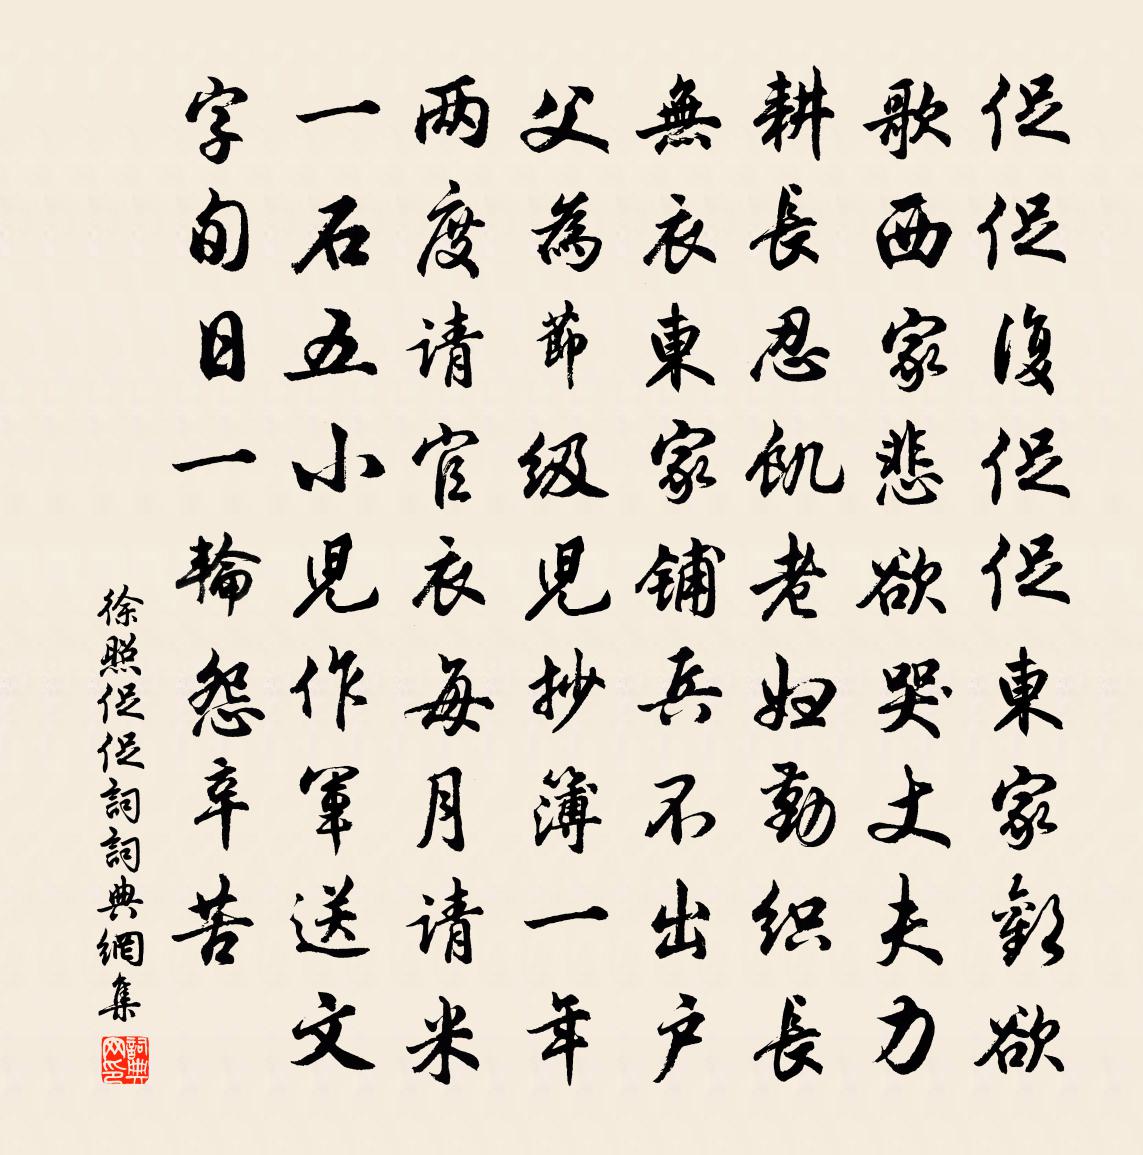 促促復促促東家歡欲
歌西家悲欲哭丈夫力
耕長忍飢老妇勤织長
無衣東家铺兵不出户
父為節级児抄簿一年
两度请官衣每月请米
一石五小児作軍送文
字旬日一輪怨辛苦
徐照促促詞詞典網集
詞典网印